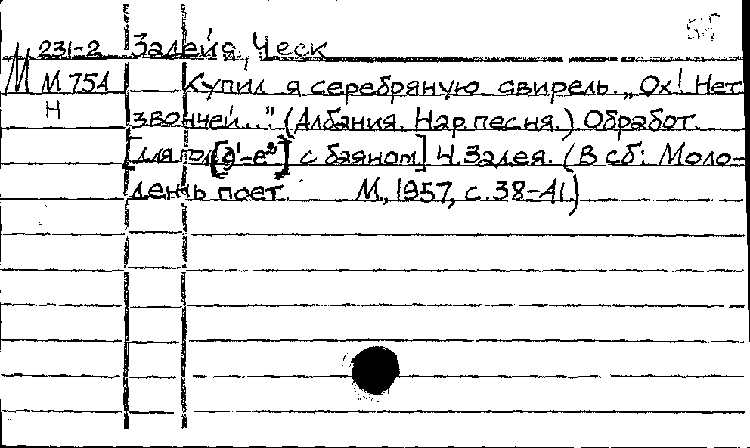 М 231-2 Залейя, Ческ
М 75А Купил я серебряную свирель. „Ох! Нет
Н звончей..." (Албания. Нар. песня.) Обработ.
[для гол [d¹-e²] с баяном] Ч. Залея. (В сб: Моло-
день поет. М., 1957, с. 38-41.)